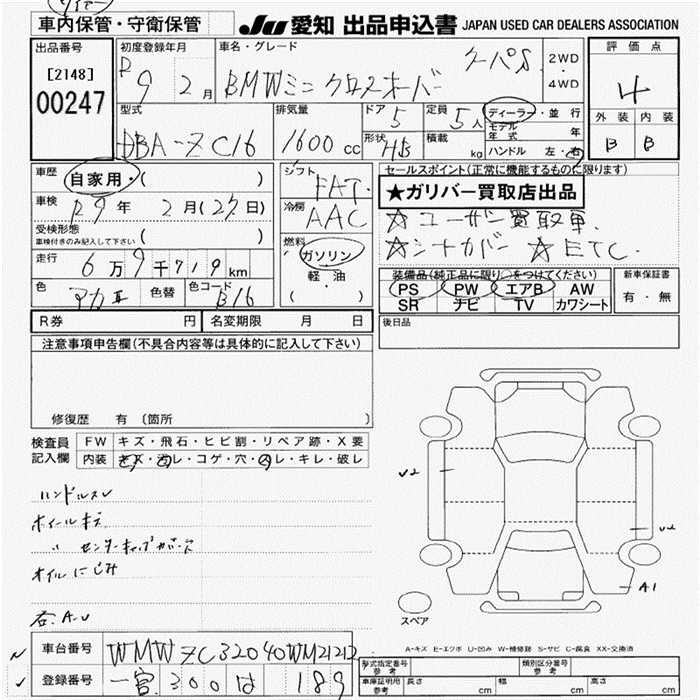 車内保管・守衛保管
JU 愛知 出品申込書 JAPAN USED CAR DEALERS ASSOCIATION
出品番号
[2148]
00247
初度登録年月
R 9 2 月
車名・グレード
BMWミニ クロスオーバー クーパS
2WD
・
4WD
評価点
4
外装 内装
B B
型式
DBA-ZC16
排気量
1600 cc
ドア 5
形状 HB
定員 5人
積載 kg
ディーラー・並行
モデル年式 年
ハンドル 左・右
車歴
自家用・( )
車検
R9年 2月(27日)
受検形態
車検付きのみ記入して下さい ( )
走行
6万9千719km
色 アカⅡ 色替 色コード B16
シフト
FAT
冷房
AAC
燃料
ガソリン
軽・油
( ・ )
セールスポイント(正常に機能するものに限ります)
★ガリバー買取店出品
☆ユーザー買取車
☆シートカバー ☆ETC
装備品(純正品に限り○をつけてください)
PS PW エアB AW
SR ナビ TV カワシート
新車保証書
有・無
R券 円 名変期限 月 日
後日品
注意事項申告欄(不具合内容等は具体的に記入して下さい)
修復歴 有 〔箇所
検査員
記入欄
FW キズ・飛石・ヒビ割・リペア跡・X要
内装 キズ・汚レ・コゲ・穴・スレ・キレ・破レ
ハンドルスレ
ホイールキズ
〃 センターキャップ
オイルにじみ
右:A-U
U2
A1
スペア
A-キズ E-エクボ U-凹み W-補修跡 S-サビ C-腐食 XX-交換済
車台番号 WMWZC32040WM21212
登録番号 一宮 300 は 189
形式指定番号
参考
類別区分番号
参考
車庫証明用
参考
長さ cm 幅 cm 高さ cm